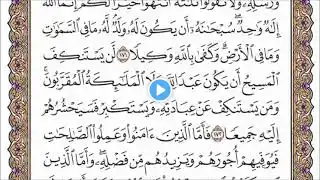 وَرُسُلِهِۦ وَلَا تَقُولُوا۟ ثَلَٰثَةٌ ٱنتَهُوا۟ خَيْرًا لَّكُمْ إِنَّمَا ٱللَّهُ
إِلَٰهٌ وَٰحِدٌ سُبْحَٰنَهُۥٓ أَن يَكُونَ لَهُۥ وَلَدٌ لَّهُۥ مَا فِى ٱلسَّمَٰوَٰتِ
وَمَا فِى ٱلْأَرْضِ وَكَفَىٰ بِٱللَّهِ وَكِيلًا ١٧١ لَّن يَسْتَنكِفَ
ٱلْمَسِيحُ أَن يَكُونَ عَبْدًا لِّلَّهِ وَلَا ٱلْمَلَٰٓئِكَةُ ٱلْمُقَرَّبُونَ
وَمَن يَسْتَنكِفْ عَنْ عِبَادَتِهِۦ وَيَسْتَكْبِرْ فَسَيَحْشُرُهُمْ
إِلَيْهِ جَمِيعًا ١٧٢ فَأَمَّا ٱلَّذِينَ ءَامَنُوا۟ وَعَمِلُوا۟ ٱلصَّٰلِحَٰتِ
فَيُوَفِّيهِمْ أُجُورَهُمْ وَيَزِيدُهُم مِّن فَضْلِهِۦ وَأَمَّا ٱلَّذِينَ